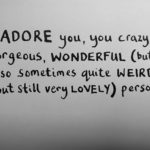 ADORE you, you crazy
orgeous, WONDERFUL (but
so sometimes quite WEIRD
but still very LOVELY) perso